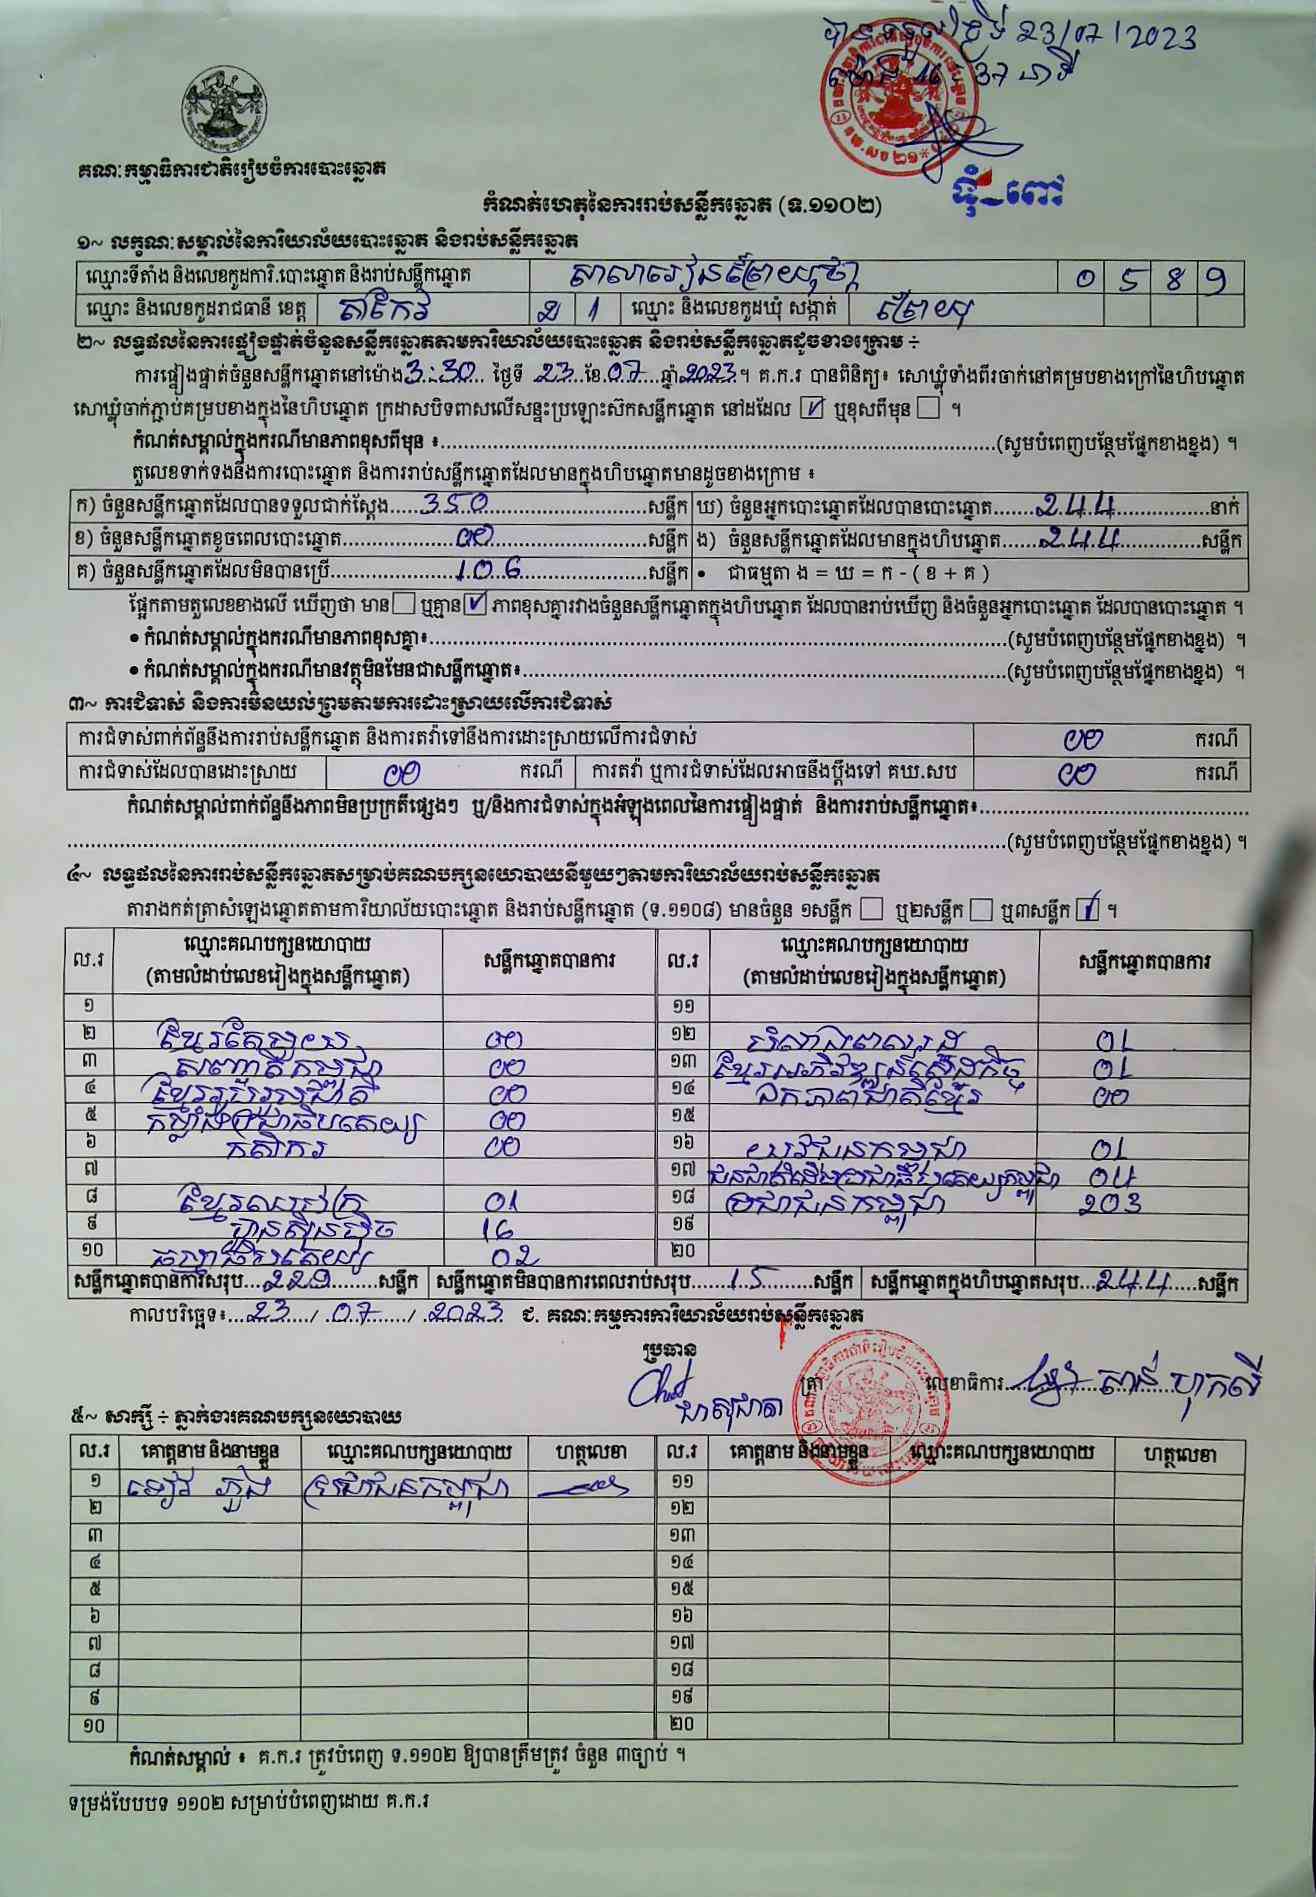 បានទទួលថ្ងៃទី 23/07/2023
ម៉ោង 16 : 37 នាទី
គណៈកម្មាធិការជាតិរៀបចំការបោះឆ្នោត
កំណត់ហេតុនៃការរាប់សន្លឹកឆ្នោត (ទ.១១០២)
១~ លក្ខណៈសម្គាល់នៃការិយាល័យបោះឆ្នោត និងរាប់សន្លឹកឆ្នោត
ឈ្មោះទីតាំង និងលេខកូដការិ.បោះឆ្នោត និងរាប់សន្លឹកឆ្នោត សាលារៀនព្រៃយុថ្កា 0 5 8 9
ឈ្មោះ និងលេខកូដរាជធានី ខេត្ត តាកែវ 2 1 ឈ្មោះ និងលេខកូដឃុំ សង្កាត់
២~ លទ្ធផលនៃការផ្ទៀងផ្ទាត់ចំនួនសន្លឹកឆ្នោតតាមការិយាល័យបោះឆ្នោត និងរាប់សន្លឹកឆ្នោតដូចខាងក្រោម ÷
ការផ្ទៀងផ្ទាត់ចំនួនសន្លឹកឆ្នោតនៅម៉ោង 3:30 ថ្ងៃទី 23 ខែ 07 ឆ្នាំ 2023 ។ គ.ក.រ បានពិនិត្យ៖ សោឃ្លុំទាំងពីរចាក់នៅគម្របខាងក្រៅនៃហិបឆ្នោត
សោឃ្លុំចាក់ភ្ជាប់គម្របខាងក្នុងនៃហិបឆ្នោត ក្រដាសបិទពាសលើសន្ទះប្រឡោះស៊កសន្លឹកឆ្នោត នៅដដែល ☑ ឬខុសពីមុន ☐ ។
កំណត់សម្គាល់ក្នុងករណីមានភាពខុសពីមុន ៖.....(សូមបំពេញបន្ថែមផ្នែកខាងខ្នង) ។
តួលេខទាក់ទងនឹងការបោះឆ្នោត និងការរាប់សន្លឹកឆ្នោតដែលមានក្នុងហិបឆ្នោតមានដូចខាងក្រោម ៖
ក) ចំនួនសន្លឹកឆ្នោតដែលបានទទួលជាក់ស្តែង.....350.....សន្លឹក ឃ) ចំនួនអ្នកបោះឆ្នោតដែលបានបោះឆ្នោត.....244.....នាក់
ខ) ចំនួនសន្លឹកឆ្នោតខូចពេលបោះឆ្នោត.....00.....សន្លឹក ង) ចំនួនសន្លឹកឆ្នោតដែលមានក្នុងហិបឆ្នោត.....244.....សន្លឹក
គ) ចំនួនសន្លឹកឆ្នោតដែលមិនបានប្រើ.....106.....សន្លឹក • ជាធម្មតា ង = ឃ = ក - ( ខ + គ )
ផ្អែកតាមតួលេខខាងលើ ឃើញថា មាន ☐ ឬគ្មាន ☑ ភាពខុសគ្នារវាងចំនួនសន្លឹកឆ្នោតក្នុងហិបឆ្នោត ដែលបានរាប់ឃើញ និងចំនួនអ្នកបោះឆ្នោត ដែលបានបោះឆ្នោត ។
• កំណត់សម្គាល់ក្នុងករណីមានភាពខុសគ្នា៖.....(សូមបំពេញបន្ថែមផ្នែកខាងខ្នង) ។
• កំណត់សម្គាល់ក្នុងករណីមានវត្ថុមិនមែនជាសន្លឹកឆ្នោត៖.....(សូមបំពេញបន្ថែមផ្នែកខាងខ្នង) ។
៣~ ការជំទាស់ និងការមិនយល់ព្រមតាមការដោះស្រាយលើការជំទាស់
ការជំទាស់ពាក់ព័ន្ធនឹងការរាប់សន្លឹកឆ្នោត និងការតវ៉ាទៅនឹងការដោះស្រាយលើការជំទាស់ 00 ករណី
ការជំទាស់ដែលបានដោះស្រាយ 00 ករណី ការតវ៉ា ឬការជំទាស់ដែលអាចនឹងប្តឹងទៅ គឃ.សប 00 ករណី
កំណត់សម្គាល់ពាក់ព័ន្ធនឹងភាពមិនប្រក្រតីផ្សេងៗ ឬ/និងការជំទាស់ក្នុងអំឡុងពេលនៃការផ្ទៀងផ្ទាត់ និងការរាប់សន្លឹកឆ្នោត៖.....
.....(សូមបំពេញបន្ថែមផ្នែកខាងខ្នង) ។
៤~ លទ្ធផលនៃការរាប់សន្លឹកឆ្នោតសម្រាប់គណបក្សនយោបាយនីមួយៗតាមការិយាល័យរាប់សន្លឹកឆ្នោត
តារាងកត់ត្រាសំឡេងឆ្នោតតាមការិយាល័យបោះឆ្នោត និងរាប់សន្លឹកឆ្នោត (ទ.១១០៨) មានចំនួន ១សន្លឹក ☐ ឬ២សន្លឹក ☐ ឬ៣សន្លឹក ☑ ។
ល.រ ឈ្មោះគណបក្សនយោបាយ (តាមលំដាប់លេខរៀងក្នុងសន្លឹកឆ្នោត) សន្លឹកឆ្នោតបានការ ល.រ ឈ្មោះគណបក្សនយោបាយ (តាមលំដាប់លេខរៀងក្នុងសន្លឹកឆ្នោត) សន្លឹកឆ្នោតបានការ
១ ១១
២ ខ្មែរតែមួយ 00 ១២ 01
៣ សញ្ជាតិកម្ពុជា 00 ១៣ ខ្មែរអភិវឌ្ឍន៍សេដ្ឋកិច្ច 01
៤ ខ្មែររួបរួមជាតិ 00 ១៤ ឯកភាពជាតិខ្មែរ 00
៥ កម្លាំងប្រជាធិបតេយ្យ 00 ១៥
៦ កសិករ 00 ១៦ យុវជនកម្ពុជា 01
៧ ១៧ ជនជាតិដើមប្រជាធិបតេយ្យកម្ពុជា 04
៨ ខ្មែរឈប់ក្រ 01 ១៨ ប្រជាជនកម្ពុជា 203
៩ ហ្វ៊ុនស៊ិនប៉ិច 16 ១៩
១០ ធម្មាធិបតេយ្យ 02 ២០
សន្លឹកឆ្នោតបានការសរុប...229...សន្លឹក សន្លឹកឆ្នោតមិនបានការពេលរាប់សរុប...15...សន្លឹក សន្លឹកឆ្នោតក្នុងហិបឆ្នោតសរុប...244...សន្លឹក
កាលបរិច្ឆេទ៖...23.../...07.../...2023 ជ. គណៈកម្មការការិយាល័យរាប់សន្លឹកឆ្នោត
ប្រធាន
ត្រា លេខាធិការ
ជា សុជាតា
៥~ សាក្សី ÷ ភ្នាក់ងារគណបក្សនយោបាយ
ល.រ គោត្តនាម និងនាមខ្លួន ឈ្មោះគណបក្សនយោបាយ ហត្ថលេខា ល.រ គោត្តនាម និងនាមខ្លួន ឈ្មោះគណបក្សនយោបាយ ហត្ថលេខា
១ ប្រជាជនកម្ពុជា ១១
២ ១២
៣ ១៣
៤ ១៤
៥ ១៥
៦ ១៦
៧ ១៧
៨ ១៨
៩ ១៩
១០ ២០
កំណត់សម្គាល់ ៖ គ.ក.រ ត្រូវបំពេញ ទ.១១០២ ឱ្យបានត្រឹមត្រូវ ចំនួន ៣ច្បាប់ ។
ទម្រង់បែបបទ ១១០២ សម្រាប់បំពេញដោយ គ.ក.រ